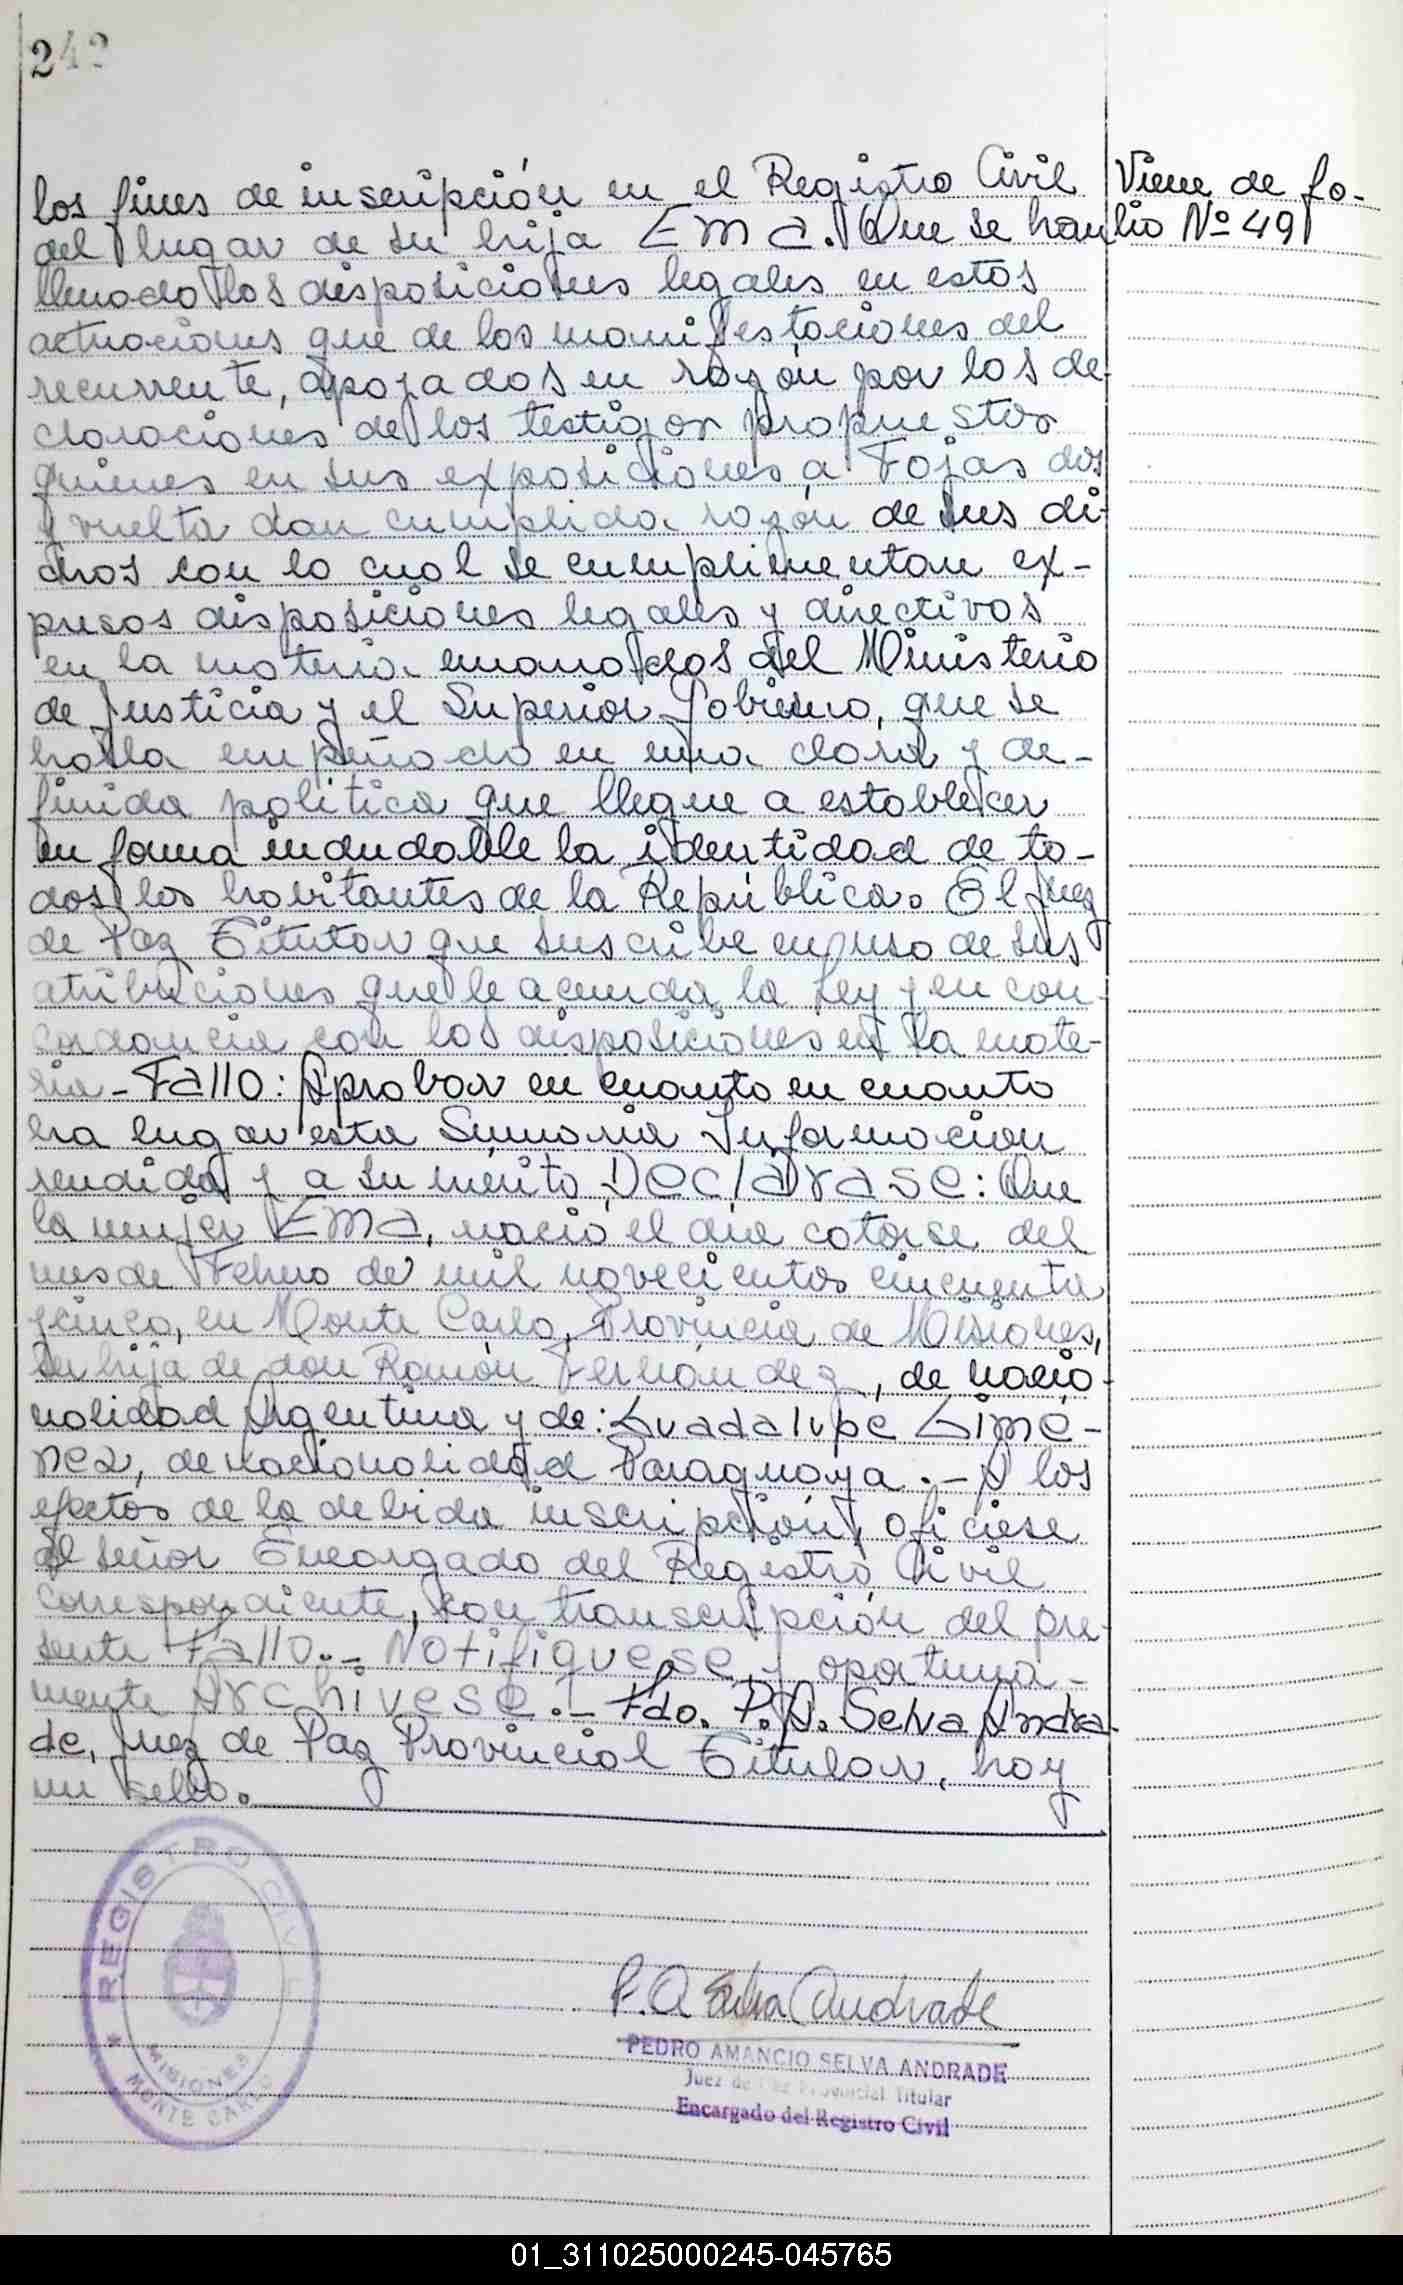 242
los fines de inscripción en el Registro Civil
del lugar de su hija EMA. Que se han
llenado las disposiciones legales en estas
actuaciones que de las manifestaciones del
recurrente, apoyadas en razón por las de-
claraciones de los testigos propuestos
quienes en sus exposiciones a Fojas dos
y vuelta dan cumplida razón de sus di-
chos con lo cual se cumplimentan ex-
presas disposiciones legales y directivas
en la materia emanadas del Ministerio
de Justicia y el Superior Gobierno, que se
halla empeñado en una clara y de-
finida política que llegue a establecer
en forma indudable la identidad de to-
dos los habitantes de la República. El Juez
de Paz Titular que suscribe en uso de sus
atribuciones que le acuerda la Ley y en con-
cordancia con las disposiciones en la mate-
ria - Fallo: Aprobar en cuanto en cuanto
ha lugar esta Sumaria Informacion
rendida y a su mérito Declárase: Que
la mujer EMA, nació el día catorse del
mes de Febrero de mil novecientos cincuenta
y cinco, en Monte Carlo, Provincia de Misiones,
su hija de don Ramón Fernández, de nacio-
nalidad Argentina y de: Guadalupe Gimé-
nez, de nacionalidad Paraguaya.- A los
efectos de la debida inscripción, oficiese
al señor Encargado del Registro Civil
correspondiente, con transcripción del pre-
sente Fallo.- Notifiquese y oportuna-
mente Archivese.- Fdo. P. A. Selva Andra-
de, Juez de Paz Provincial Titular, hay
un sello.
Viene de fo-
lio Nº 491
REGISTRO CIVIL
MISIONES
MONTE CARLO
P. A. Selva Andrade
PEDRO AMANCIO SELVA ANDRADE
Juez de Paz Provincial Titular
Encargado del Registro Civil
01_311025000245-045765